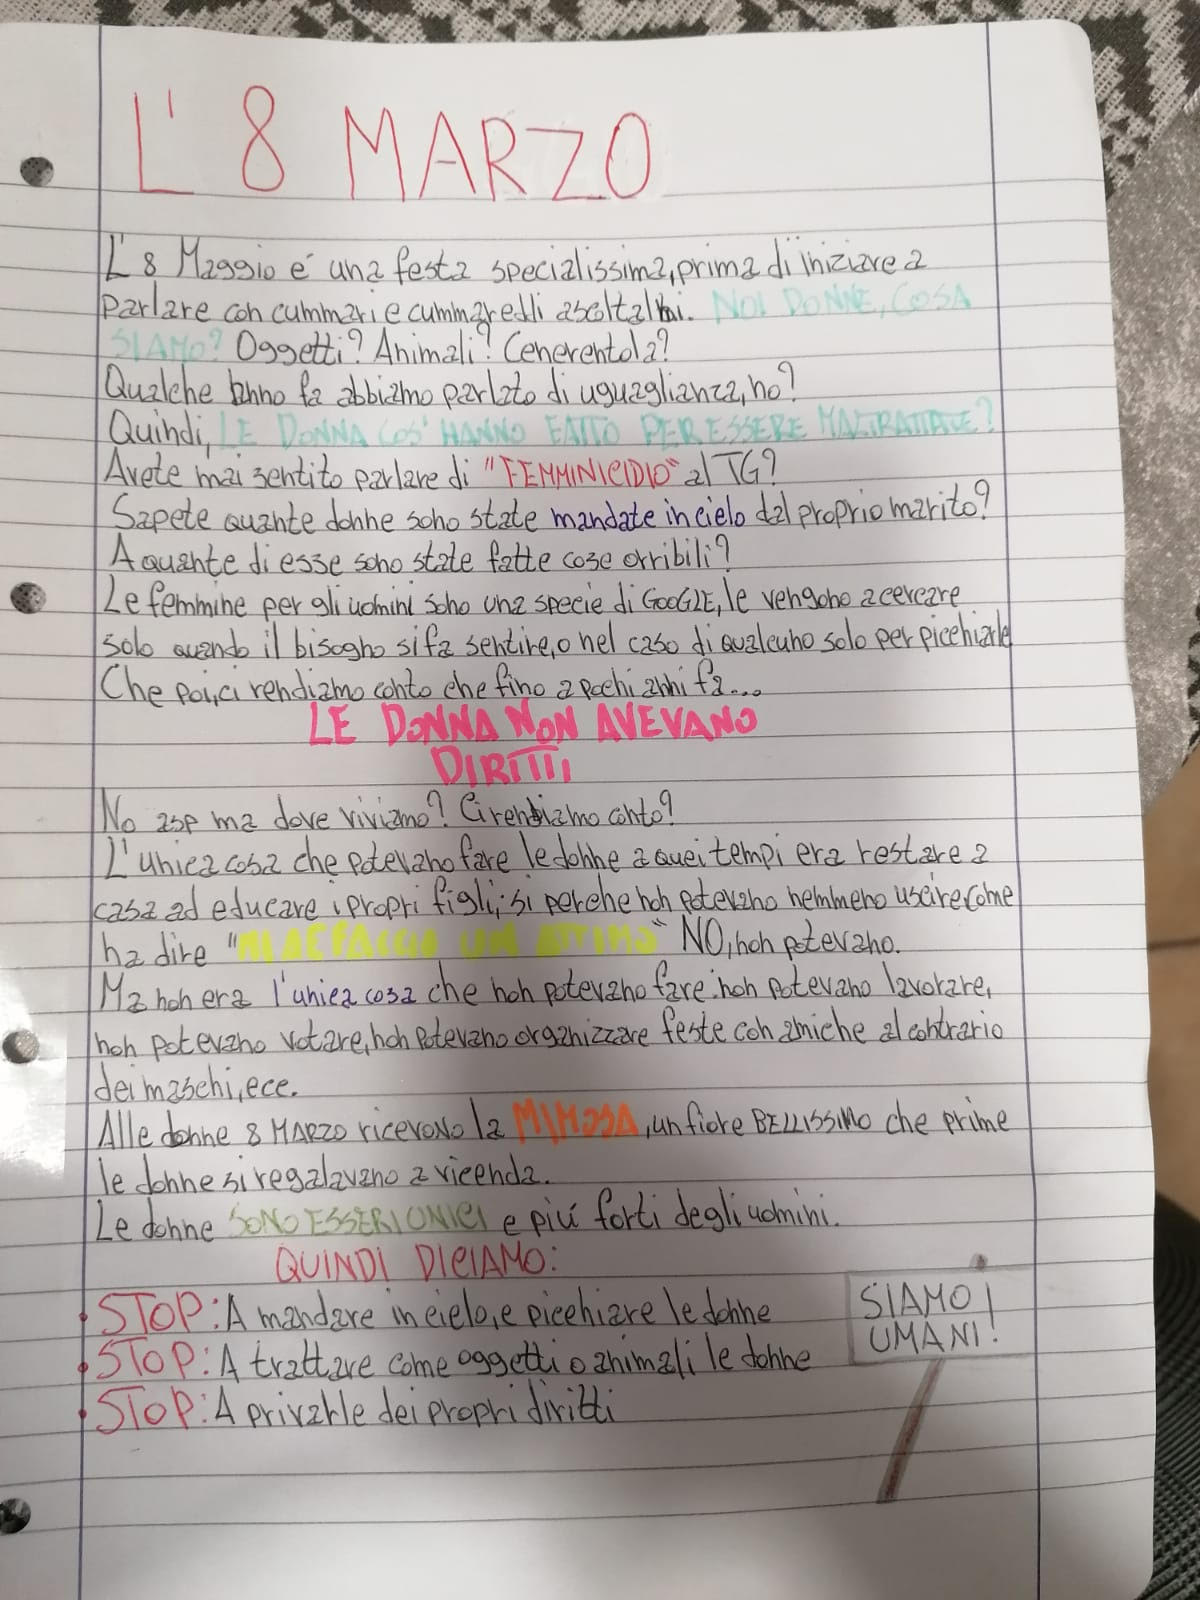 L' 8 MARZO
L'8 Maggio é una festa specialissima, prima di iniziare a
parlare con cummari e cummaredli ascoltalmi. NOI DONNE, COSA
SIAMO? Oggetti? Animali? Cenerentola?
Qualche anno fa abbiamo parlato di uguaglianza, no?
Quindi, LE DONNA COS' HANNO FATTO PER ESSERE MALTRATTATE?
Avete mai sentito parlare di "FEMMINICIDIO" al TG?
Sapete quante donne sono state mandate in cielo dal proprio marito?
A quante di esse sono state fatte cose orribili?
Le femmine per gli uomini sono una specie di GOOGLE, le vengono a cercare
solo quando il bisogno si fa sentire, o nel caso di qualcuno solo per picchiarle
Che poi, ci rendiamo conto che fino a pochi anni fa...
LE DONNA NON AVEVANO
DIRITTI,
No asp ma dove viviamo? Ci rendiamo conto?
L'unica cosa che potevano fare le donne a quei tempi era restare a
casa ad educare i propri figli, si perche non potevano nemmeno uscire. Come
ha dire " UN ATTIMO" NO, non potevano.
Ma non era l'unica cosa che non potevano fare: non potevano lavorare,
non potevano votare, non potevano organizzare feste con amiche al contrario
dei maschi, ecc.
Alle donne 8 MARZO ricevono la MIMOSA, un fiore BELLISSIMO che prime
le donne si regalavano a vicenda.
Le donne SONO ESSERI UNICI e piú forti degli uomini.
QUINDI DICIAMO:
• STOP: A mandare in cielo, e picchiare le donne
• STOP: A trattare come oggetti o animali le donne
• STOP: A privarle dei propri diritti
SIAMO
UMANI!